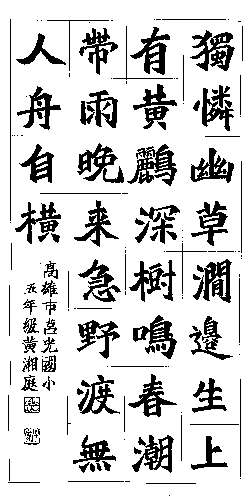 獨憐幽草澗邊生上
有黃鸝深樹鳴春潮
帶雨晚来急野渡無
人舟自橫
高雄市莒光國小
五年級黃湘庭